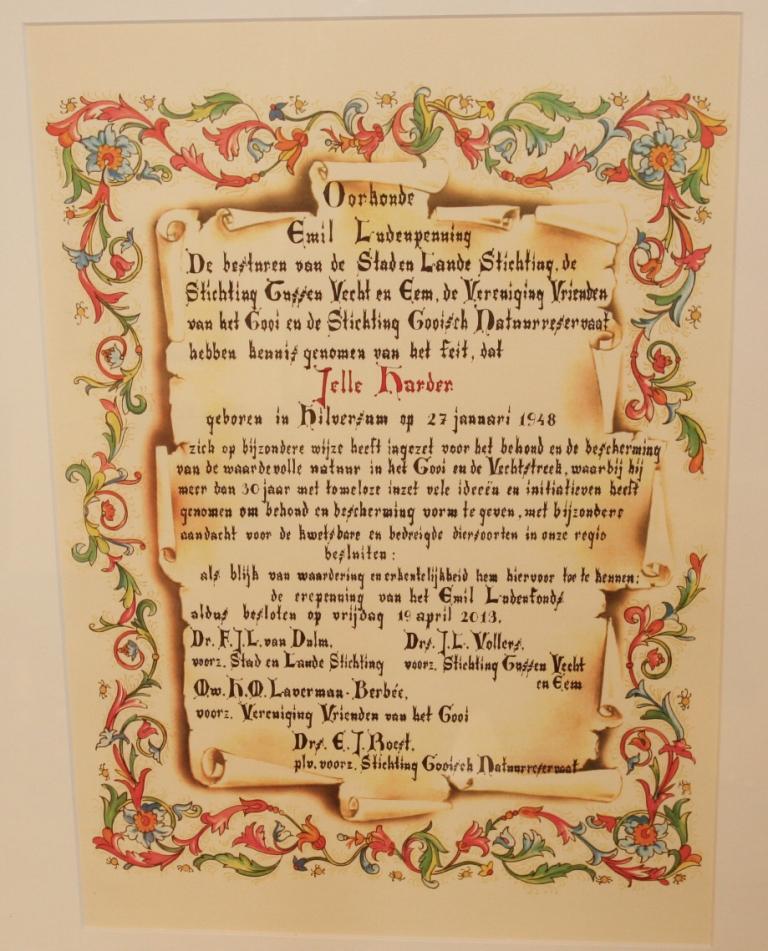 Oorkonde
Emil Ludenpenning
De besturen van de Stad en Lande Stichting, de
Stichting Tussen Vecht en Eem, de Vereniging Vrienden
van het Gooi en de Stichting Gooisch Natuurreservaat
hebben kennis genomen van het feit, dat
Jelle Harder
geboren in Hilversum op 27 januari 1948
zich op bijzondere wijze heeft ingezet voor het behoud en de bescherming
van de waardevolle natuur in het Gooi en de Vechtstreek, waarbij hij
meer dan 30 jaar met tomeloze inzet vele ideeën en initiatieven heeft
genomen om behoud en bescherming vorm te geven, met bijzondere
aandacht voor de kwetsbare en bedreigde diersoorten in onze regio
besluiten:
als blijk van waardering en erkentelijkheid hem hiervoor toe te kennen:
de erepenning van het Emil Ludenfonds
aldus besloten op vrijdag 19 april 2013.
Dr. F.J.L. van Dulm, Drs. J.L. Vollers,
voorz. Stad en Lande Stichting voorz. Stichting Tussen Vecht
en Eem
Mw. H.M. Laverman-Berbée,
voorz. Vereniging Vrienden van het Gooi
Drs. E.J. Roest,
plv. voorz. Stichting Gooisch Natuurreservaat